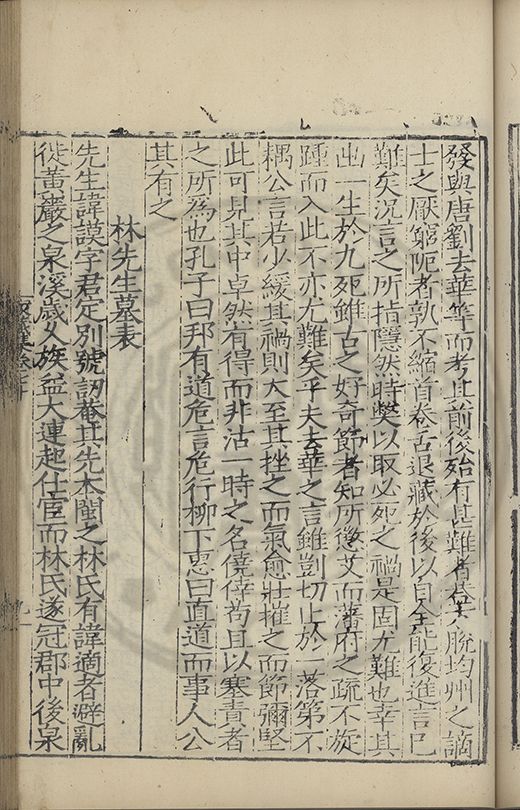 發與唐劉去華等而考其前後殆有甚難者蓋其脫均州之謫
士之厭窮阨者孰不縮首卷舌退藏於後以自全能復進言已
難矣況言之所指隱然時獘以取必死之禍是固尤難也幸其
出一生於九死雖古之好奇節者知所懲艾而藩府之疏不旋
踵而入此不亦尤難矣乎夫去華之言雖剴切止於一落第不
耦公言若少緩其禍則大至其挫之而氣愈壯摧之而節彌堅
此可見其中卓然有得而非沽一時之名僥倖苟且以塞責者
之所為也孔子曰邦有道危言危行柳下惠曰直道而事人公
其有之
林先生墓表
先生諱謨字君定別號訒菴其先本閩之林氏有諱適者避亂
從黃巖之泉溪歲久族益大連起仕宦而林氏遂冠郡中後泉